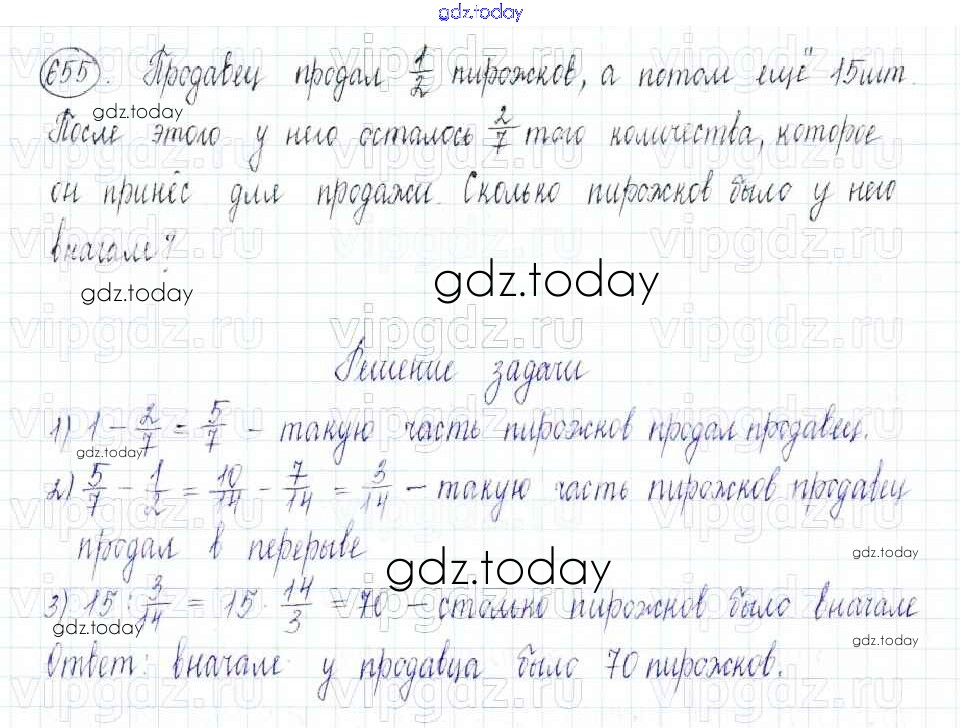 gdz.today
655. Продавец продал 1/2 пирожков, а потом ещё 15 шт.
gdz.today
После этого у него осталось 2/7 того количества, которое
он принёс для продажи. Сколько пирожков было у него
вначале?
gdz.today
gdz.today
vipgdz.ru
Решение задачи
1) 1 - 2/7 = 5/7 - такую часть пирожков продал продавец.
gdz.today
2) 5/7 - 1/2 = 10/14 - 7/14 = 3/14 - такую часть пирожков продавец
продал в перерыве
gdz.today
gdz.today
3) 15 : 3/14 = 15 · 14/3 = 70 - столько пирожков было вначале
gdz.today
gdz.today
Ответ: вначале у продавца было 70 пирожков.